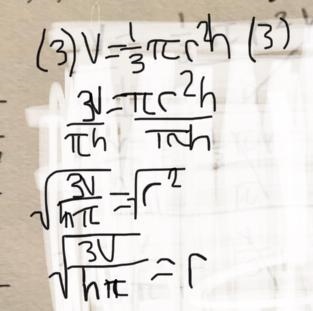 (3) V = 1/3 πr²h (3)
3V/πh = πr²h/πh
√(3V/hπ) = √r²
√(3V/hπ) = r